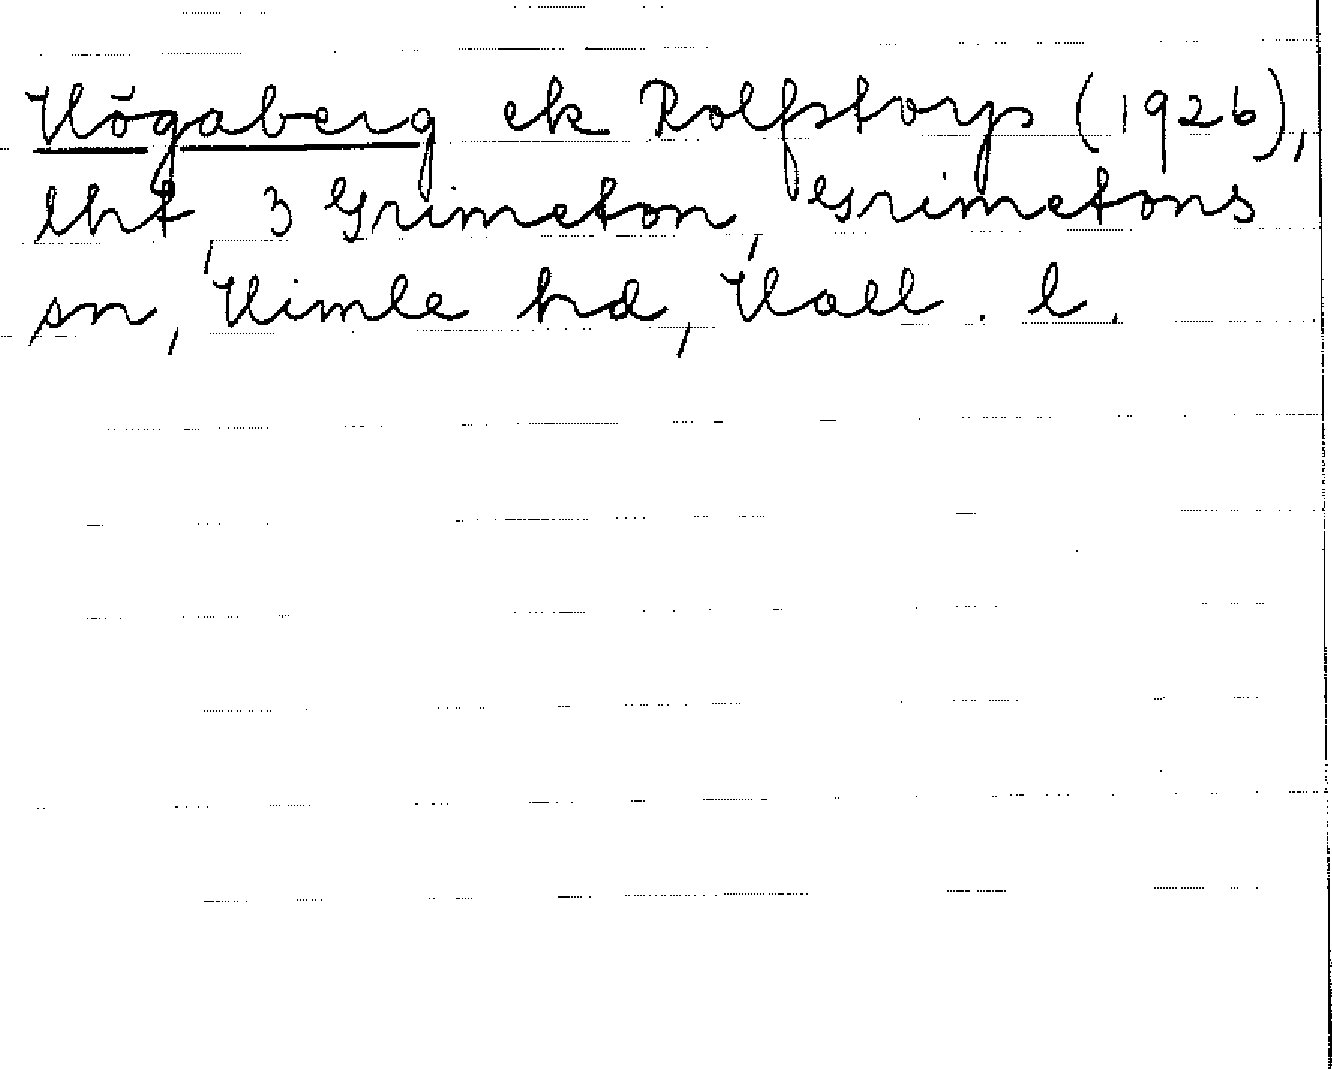 Högaberg ek Rolfstorps (1926),
lht, 3 Grimeton, Grimetons
sn, Himle hd, Hall. l.